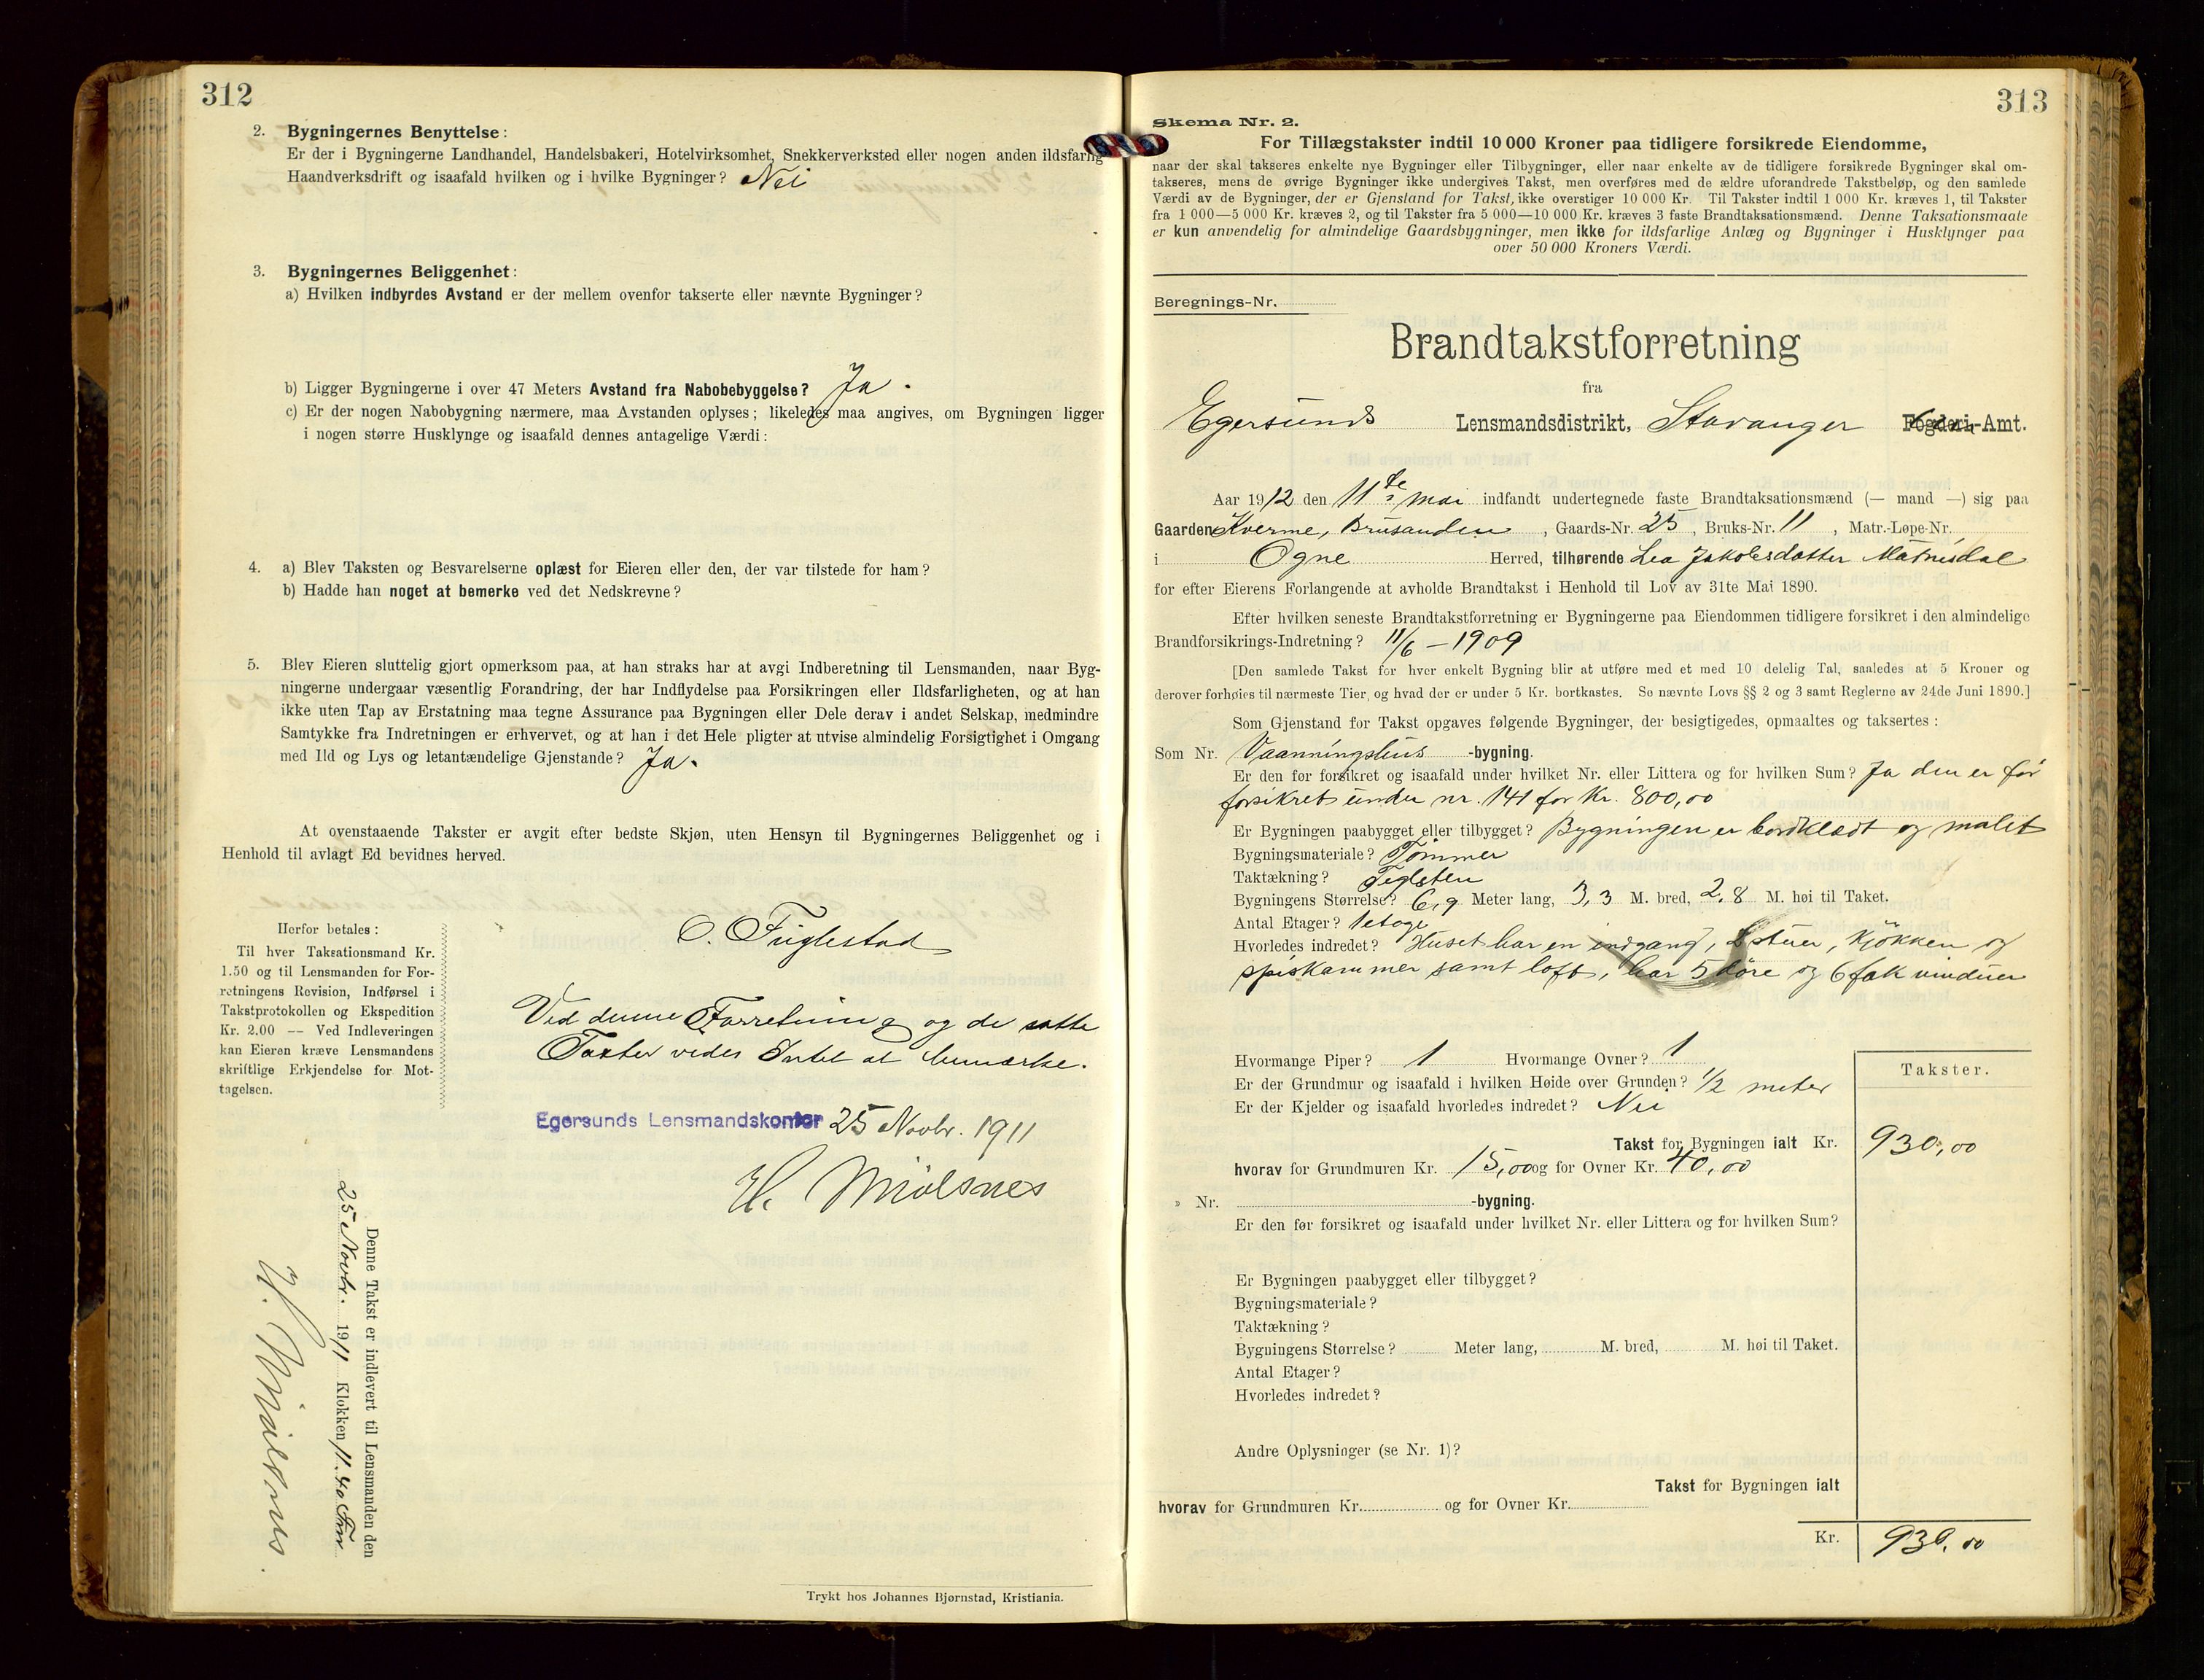 312
2. Bygningernes Benyttelse:
Er der i Bygningerne Landhandel, Handelsbakeri, Hotelvirksomhet, Snekkerverksted eller nogen anden ildsfarlig
Haandverksdrift og isaafald hvilken og i hvilke Bygninger? Nei
3. Bygningernes Beliggenhet:
a) Hvilken indbyrdes Avstand er der mellem ovenfor takserte eller nævnte Bygninger?
b) Ligger Bygningerne i over 47 Meters Avstand fra Nabobebyggelse? Ja.
c) Er der nogen Nabobygning nærmere, maa Avstanden oplyses; likeledes maa angives, om Bygningen ligger
i nogen større Husklynge og isaafald dennes antagelige Værdi:
4. a) Blev Taksten og Besvarelserne oplæst for Eieren eller den, der var tilstede for ham?
b) Hadde han noget at bemerke ved det Nedskrevne?
5. Blev Eieren sluttelig gjort opmerksom paa, at han straks har at avgi Indberetning til Lensmanden, naar Byg-
ningerne undergaar væsentlig Forandring, der har Indflydelse paa Forsikringen eller Ildsfarligheten, og at han
ikke uten Tap av Erstatning maa tegne Assurance paa Bygningen eller Dele derav i andet Selskap, medmindre
Samtykke fra Indretningen er erhvervet, og at han i det Hele pligter at utvise almindelig Forsigtighet i Omgang
med Ild og Lys og letantændelige Gjenstande? Ja.
At ovenstaaende Takster er avgit efter bedste Skjøn, uten Hensyn til Bygningernes Beliggenhet og i
Henhold til avlagt Ed bevidnes herved.
O. Fuglestad
Herfor betales:
Til hver Taksationsmand Kr.
1.50 og til Lensmanden for For-
retningens Revision, Indførsel i
Takstprotokollen og Ekspedition
Kr. 2.00 — Ved Indleveringen
kan Eieren kræve Lensmandens
skriftlige Erkjendelse for Mot-
tagelsen.
Ved denne Forretning og de satte
Taxter vides Intet at bemærke.
Egersunds Lensmandskontor 25 Novbr. 1911
H. Mjølsnes
Denne Takst er indlevert til Lensmanden den
25 Novbr. 1911 Klokken 11.40 Fm
H. Mjølsnes
Trykt hos Johannes Bjørnstad, Kristiania.
313
Skema Nr. 2.
For Tillægstakster indtil 10 000 Kroner paa tidligere forsikrede Eiendomme,
naar der skal takseres enkelte nye Bygninger eller Tilbygninger, eller naar enkelte av de tidligere forsikrede Bygninger skal om-
takseres, mens de øvrige Bygninger ikke undergives Takst, men overføres med de ældre uforandrede Takstbeløp, og den samlede
Værdi av de Bygninger, der er Gjenstand for Takst, ikke overstiger 10 000 Kr. Til Takster indtil 1 000 Kr. kræves 1, til Takster
fra 1 000—5 000 Kr. kræves 2, og til Takster fra 5 000—10 000 Kr. kræves 3 faste Brandtaksationsmænd. Denne Taksationsmaate
er kun anvendelig for almindelige Gaardsbygninger, men ikke for ildsfarlige Anlæg og Bygninger i Husklynger paa
over 50 000 Kroners Værdi.
Beregnings-Nr.
Brandtakstforretning
fra
Egersunds Lensmandsdistrikt, Stavanger Fogderi-Amt.
Aar 1912 den 11te mai indfandt undertegnede faste Brandtaksationsmænd (— mand —) sig paa
Gaarden Kverme, Brusanden, Gaards-Nr. 25, Bruks-Nr. 11, Matr.-Løpe-Nr.
i Ogne Herred, tilhørende Lea Jakobsdatter
for efter Eierens Forlangende at avholde Brandtakst i Henhold til Lov av 31te Mai 1890.
Efter hvilken seneste Brandtakstforretning er Bygningerne paa Eiendommen tidligere forsikret i den almindelige
Brandforsikrings-Indretning? 11/6 – 1909
[Den samlede Takst for hver enkelt Bygning blir at utføre med et med 10 delelig Tal, saaledes at 5 Kroner og
derover forhøies til nærmeste Tier, og hvad der er under 5 Kr. bortkastes. Se nævnte Lovs §§ 2 og 3 samt Reglerne av 24de Juni 1890.]
Som Gjenstand for Takst opgaves følgende Bygninger, der besigtigedes, opmaaltes og taksertes:
Som Nr. Vaanningshus -bygning.
Er den før forsikret og isaafald under hvilket Nr. eller Littera og for hvilken Sum? Ja den er før
forsikret under nr. 141 for Kr. 800,00
Er Bygningen paabygget eller tilbygget? Bygningen er bordklædt og malet
Bygningsmateriale? Tømmer
Taktækning? Teglsten
Bygningens Størrelse? 6,9 Meter lang, 3,3 M. bred, 2,8 M. høi til Taket.
Antal Etager? 1 etage
Hvorledes indredet? Huset har en indgang, 2 stuer, kjøkken og
spiskammer samt loft, har 5 døre og 6 fak vinduer
Hvormange Piper? 1 Hvormange Ovner? 1
Er der Grundmur og isaafald i hvilken Høide over Grunden? 1/2 meter
Er der Kjelder og isaafald hvorledes indredet? Nei
Takster.
Takst for Bygningen ialt Kr. 930,00
hvorav for Grundmuren Kr. 15,00 og for Ovner Kr. 40,00
» Nr. -bygning.
Er den før forsikret og isaafald under hvilket Nr. eller Littera og for hvilken Sum?
Er Bygningen paabygget eller tilbygget?
Bygningsmateriale?
Taktækning?
Bygningens Størrelse? Meter lang, M. bred, M. høi til Taket.
Antal Etager?
Hvorledes indredet?
Andre Oplysninger (se Nr. 1)?
Takst for Bygningen ialt
hvorav for Grundmuren Kr. og for Ovner Kr.
Kr. 930,00